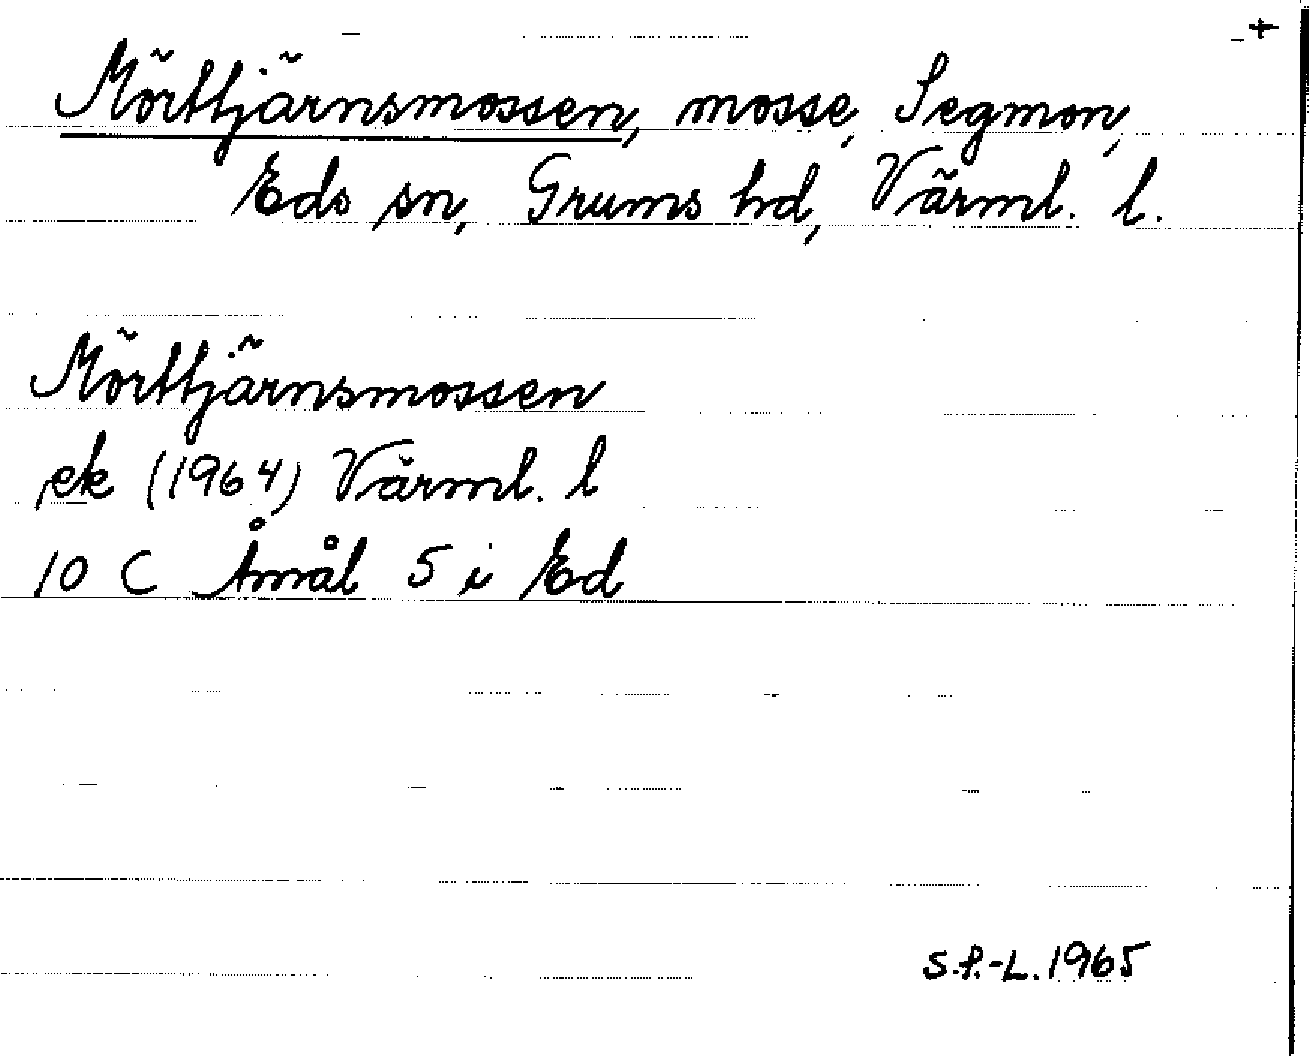 +
Mörttjärnsmossen, mosse, Segmon,
Eds sn, Grums hd, Värml. l.
Mörttjärnsmossen
ek (1964) Värml. l
10 C Åmål 5 i Ed
S.P.-L. 1965